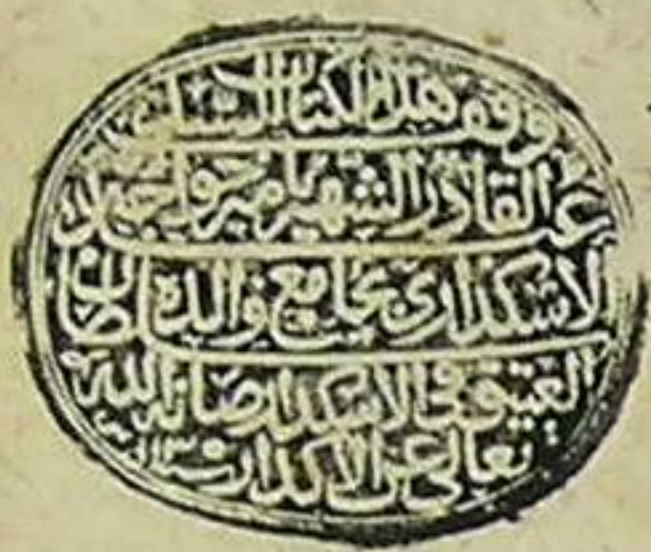 وقف هذا الكتاب السيد
عبد القادر الشهير بأمير خواجه
الاسكداري بجامع والده سلطان
العتيق في الاسكدار صانه الله
تعالى عن الاكدار سنة